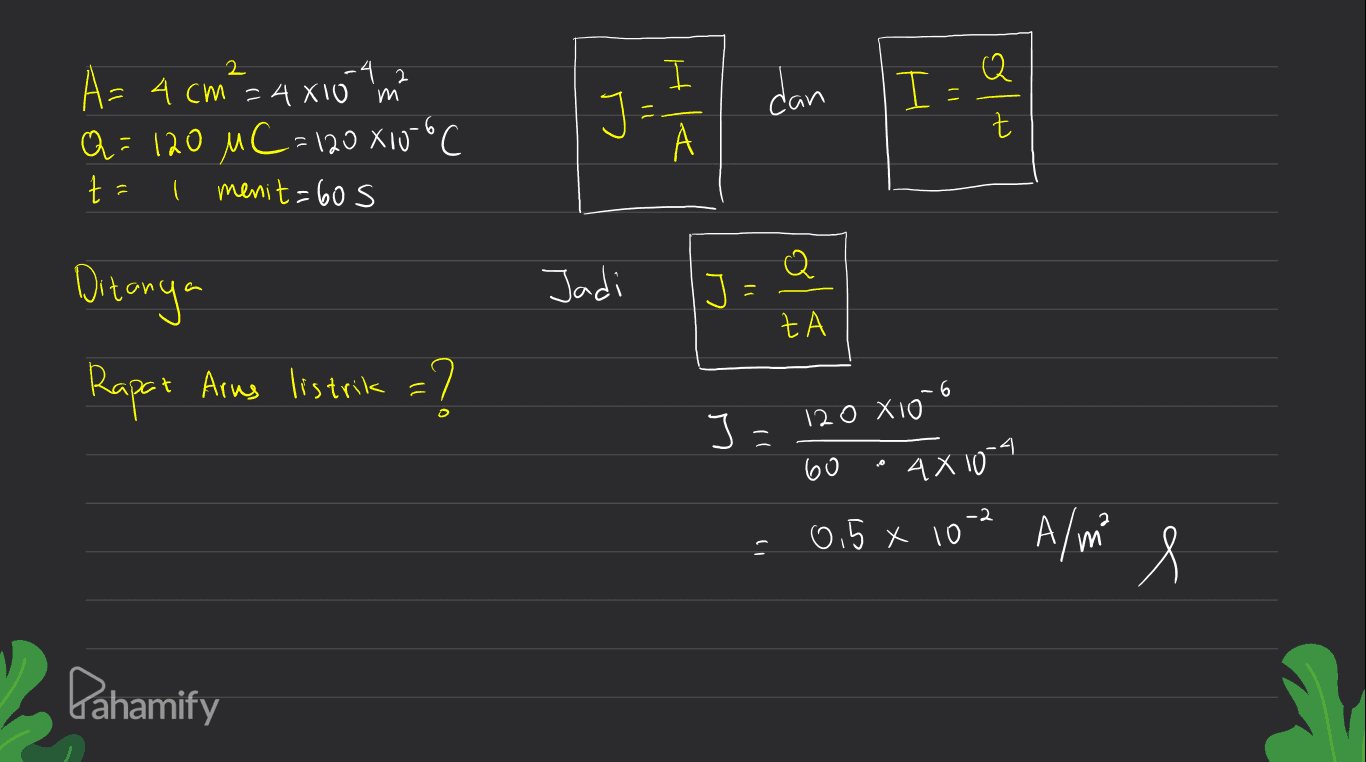 A = 4 cm² = 4 x10⁻⁴ m²
Q = 120 μC = 120 x10⁻⁶ C
t = 1 menit = 60 s
J = I/A dan I = Q/t
Ditanya
Rapat Arus listrik = ?
Jadi J = Q/tA
J = 120 x10⁻⁶ / 60 • 4 x 10⁻⁴
= 0,5 x 10⁻² A/m²
Pahamify